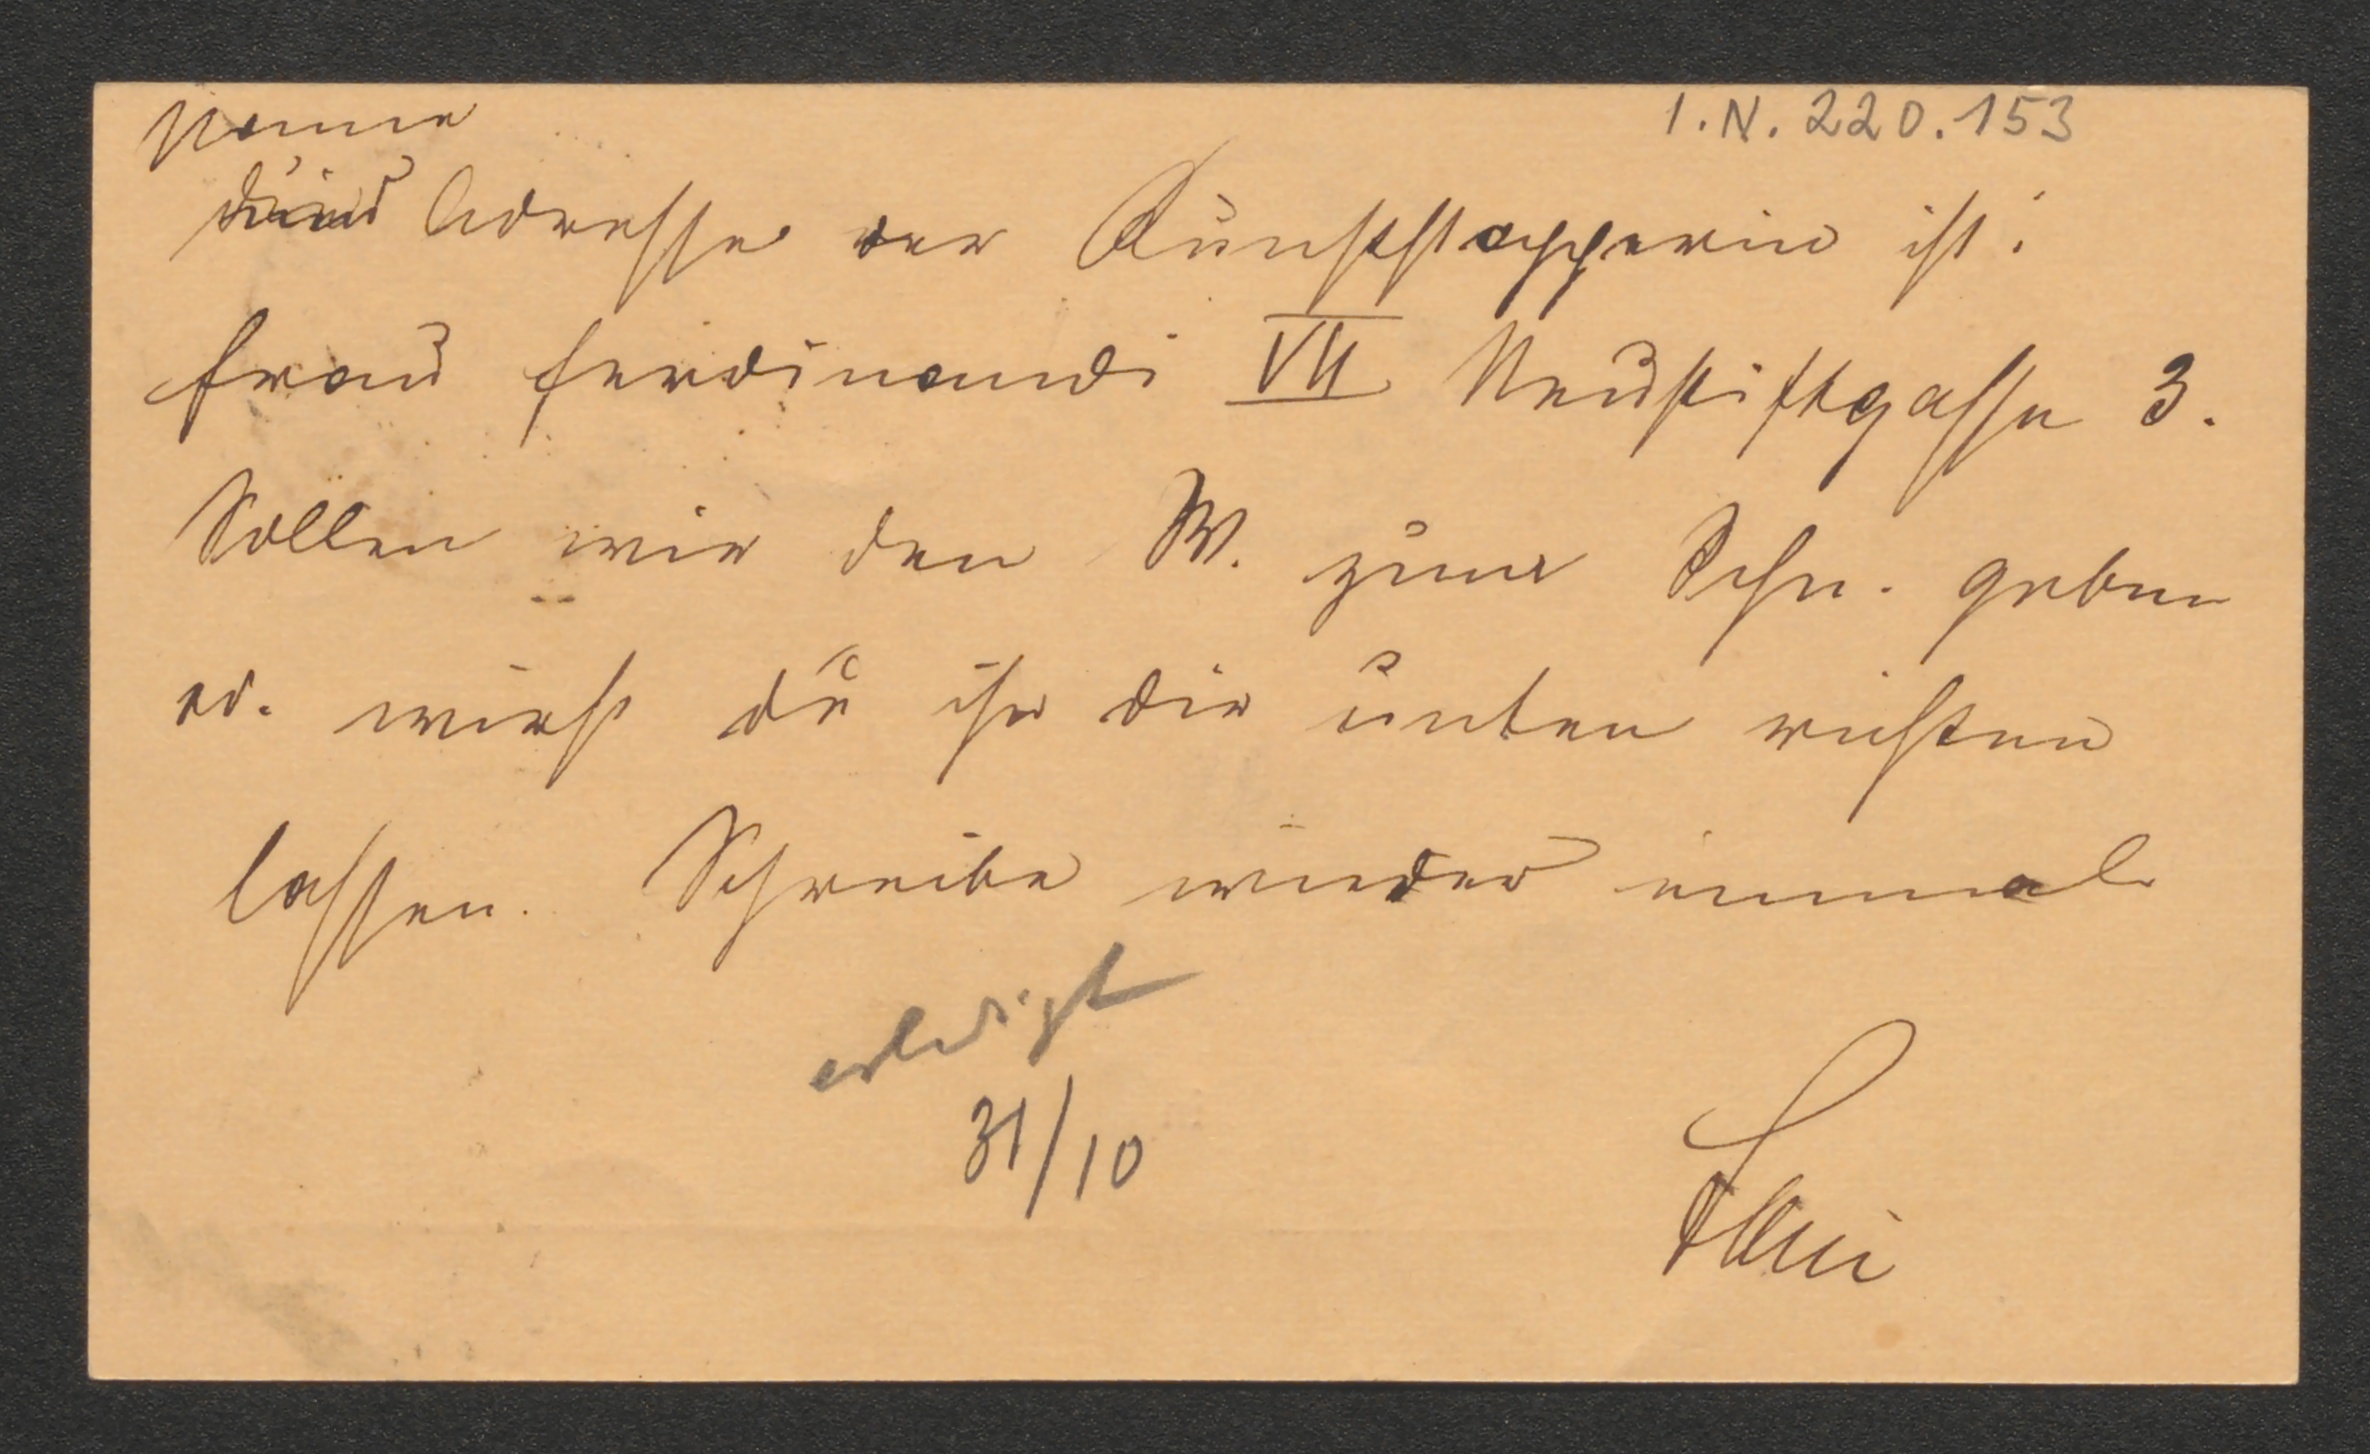 I.N. 220.153
Name
Adresse der Kunststopperin ist:
Frau Ferdinandi VII Neustiftgasse 3.
Sollen wir den W. zum Schn. geben
od. wirst du ihn dir unten richten
lassen. Schreibe wieder einmal
erledigt
31/10